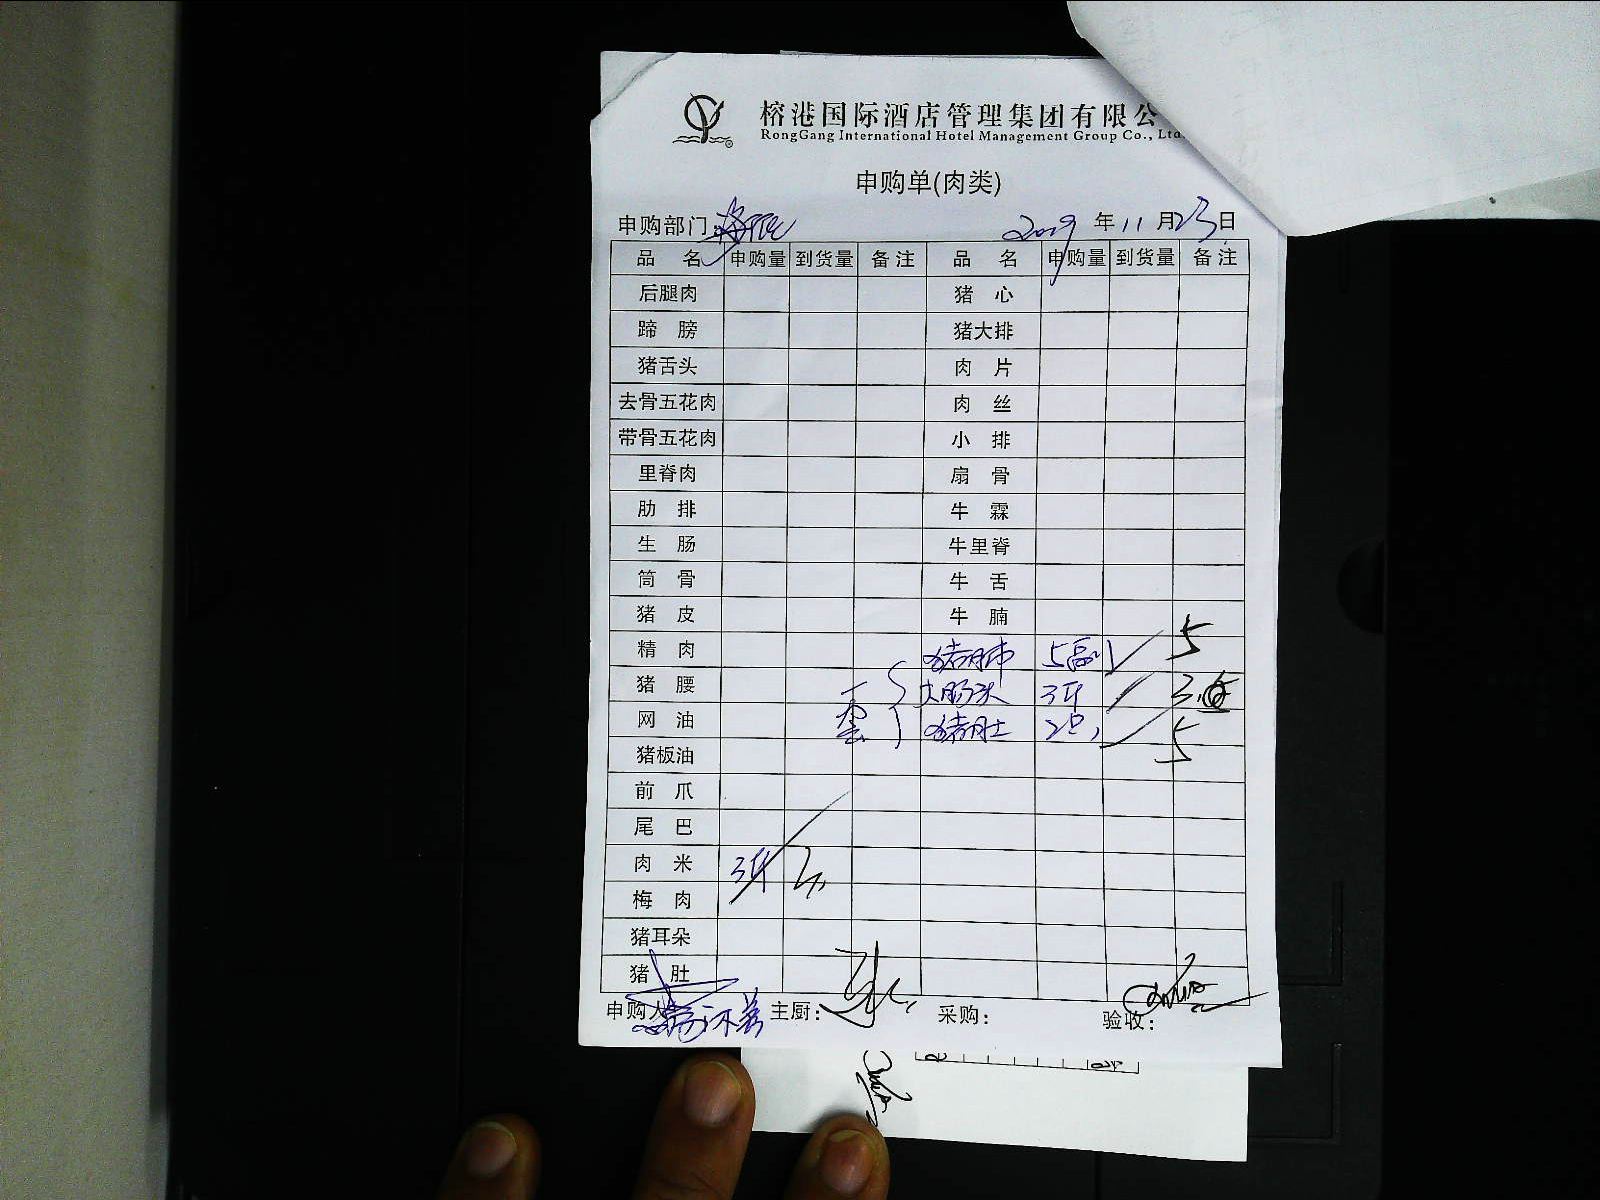 榕港国际酒店管理集团有限公
RongGang International Hotel Management Group Co., Ltd.
申购单(肉类)
申购部门: 2019 年 11 月 23 日
品 名 申购量 到货量 备注 品 名 申购量 到货量 备注
后腿肉 猪 心
蹄 膀 猪大排
猪舌头 肉 片
去骨五花肉 肉 丝
带骨五花肉 小 排
里脊肉 扇 骨
肋 排 牛 霖
生 肠 牛里脊
筒 骨 牛 舌
猪 皮 牛 腩
精 肉 猪肺 5副 5
猪 腰 大肠头 3斤
网 油 猪肚 2只 5
猪板油
前 爪
尾 巴
肉 米 3斤
梅 肉
猪耳朵
猪 肚
申购人 主厨: 采购: 验收: